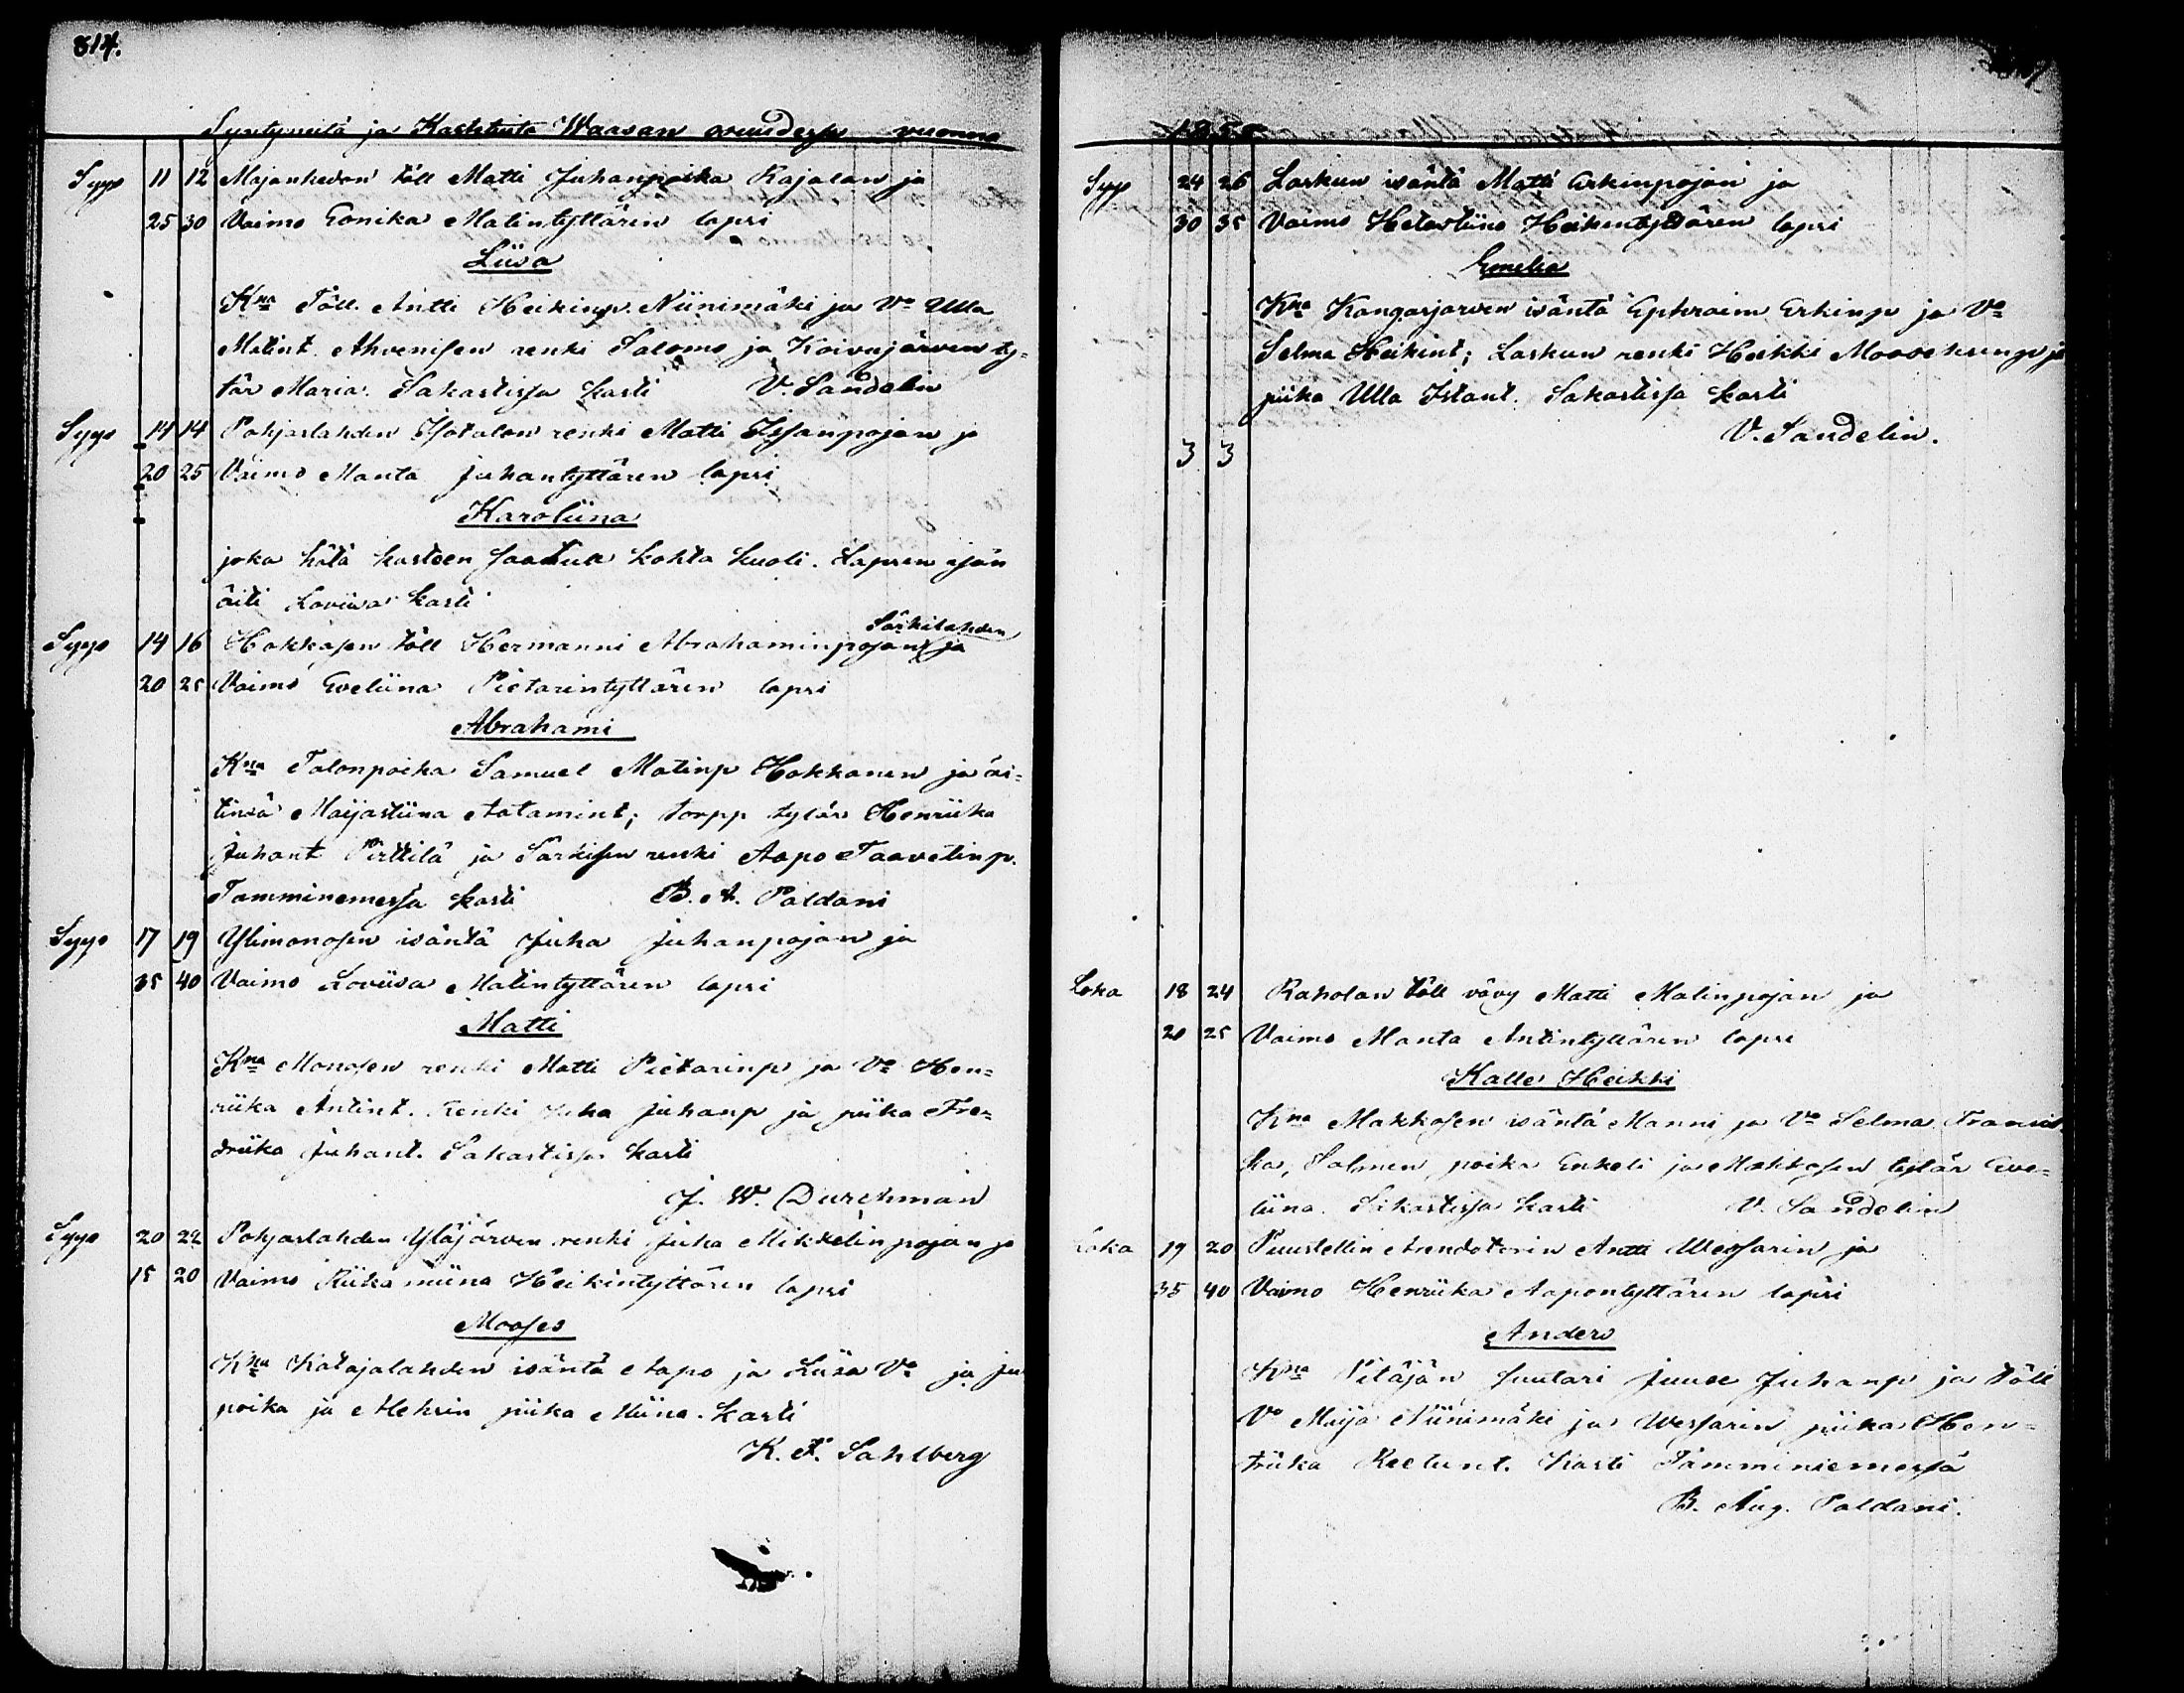 814.
Syntyneitä ja Kastetuita Waasan osuudessa vuonna
Syys 11 12 Majanhedon töll Matti Juhanpoika Rajalan ja
25 30 Vaimo Eonika Matintyttären lapsi
Liisa
Kna Töll. Antti Heikinp. Niinimäki ja Vo Ulla
Matint. Ahvenisen renki Salomo ja Koivujärven ty-
tär Maria. Sakastissa kasti V. Sandelin
Syys 14 14 Pohjaslahden Isotalon renki Matti Issanpojan ja
20 25 Vaimo Manta Juhantyttären lapsi
Karoliina
joka hätä kasteen saatua kohta kuoli. Lapsen isän
äiti Loviisa kasti
Särkilahden
Syys 14 16 Hokkasen töll Hermanni Abrahaminpojan ja
20 25 Vaimo Eveliina Pietarintyttären lapsi
Abrahami
Kna Talonpoika Samuel Matinp Hokkanen ja äi-
tinsä Maijastiina Aatamint; torpp tytär Henriika
Juhant Pirttilä ja Särkisen renki Aapo Taavetinp.
Tamminemessa kasti B. A. Paldani
Syys 17 19 Ylimonosen isäntä Juha Juhanpojan ja
35 40 Vaimo Loviisa Matintyttären lapsi
Matti
Kna Monosen renki Matti Pietarinp ja Vo Hen-
riika Antint. Renki Juha Juhanp ja piika Fre-
driika Juhant. Sakastissa kasti
J. W. Durchman
Syys 20 22 Pohjaslahden Yläjärven renki Juha Mikkelinpojan ja
15 20 Vaimo Riikamiina Heikintyttären lapsi
Mooses
Kna Katajalahden isäntä Aapo ja Liisa Vo ja
poika ja Mehrin piika Miina. kasti
K. F. Sahlberg
1855
Syys 24 26 Laskun isäntä Matti Erkinpojan ja
30 35 Vaimo Hetastiina Heikintyttären lapsi
Emelia
Kna Kangasjärven isäntä Ephraim Erkinp ja Vo
Selma Heikint; Laskun renki Heikki Mooseksenp ja
piika Ulla Istant. Sakastissa kasti
V. Sandelin.
3 3
Loka 18 24 Raholan töll vävy Matti Matinpojan ja
20 25 Vaimo Manta Antintyttären lapsi
Kalle Heikki
Kna Makkosen isäntä Manni ja Vo Selma Fransis-
ka, Salmen poika Enkeli ja Makkosen tytär Eve-
liina. Sakastissa kasti V. Sandelin
Loka 19 20 Puustellin Arendatorin Antti Wessarin ja
35 40 Vaimo Henriika Aapontyttären lapsi
Anders
Kna Pitäjän suutari Juuse Juhanp ja töll
Vo Maija Niinimäki ja Wessarin piika Hen-
triika Reetunt. kasti Tamminiemessä
B. Aug. Paldani.